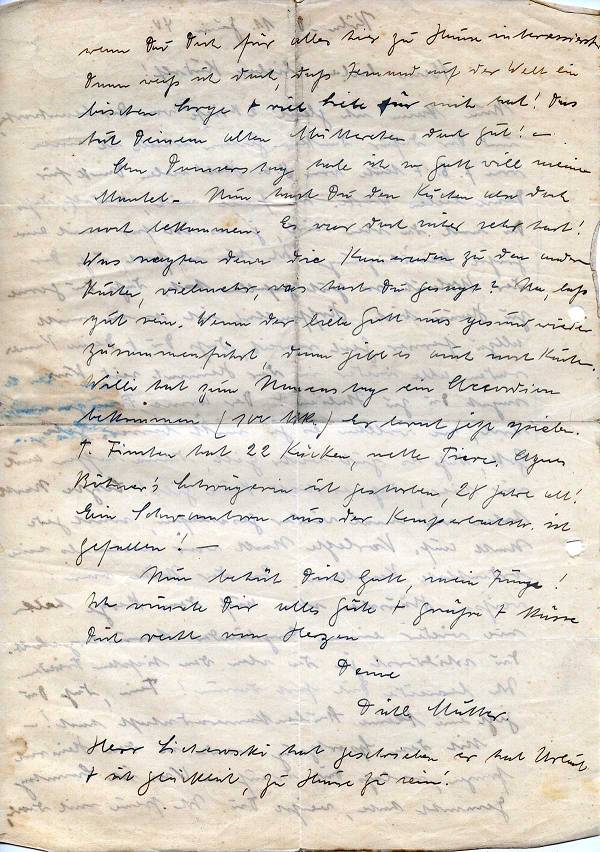 wenn Du Dich für alles hier zu Hause interessierst
dann weiß ich doch, daß Jemand auf der Welt ein
bischen Sorge + viel Liebe für mich hat! Das
tut Deinem alten Mütterchen doch gut! –
Am Donnerstag hole ich so Gott will meinen
Mantel. Nun hast Du den Kuchen also doch
noch bekommen. Es war doch sicher sehr hart!
Was sagten denn die Kameraden zu dem andern
Kuchen, vielmehr, was hast Du gesagt? Na, laß
gut sein. Wenn der liebe Gott uns gesund wieder
zusammenführt, dann gibt es auch noch Kuchen.
Willi hat zum Namenstag ein Accordion
bekommen (700 Mk.) er lernt jetzt spielen.
T. hat 22 Kücken, nette Tiere. Agnes
ist gestorben, 28 Jahre alt!
Ein aus der ist
gefallen! –
Nun behüt Dich Gott, mein Junge!
Ich wünsche Dir alles Gute + grüße + küsse
Dich recht von Herzen
Deine
Mutter.
Herr hat geschrieben er hat Urlaub
+ ist glücklich, zu Hause zu sein!